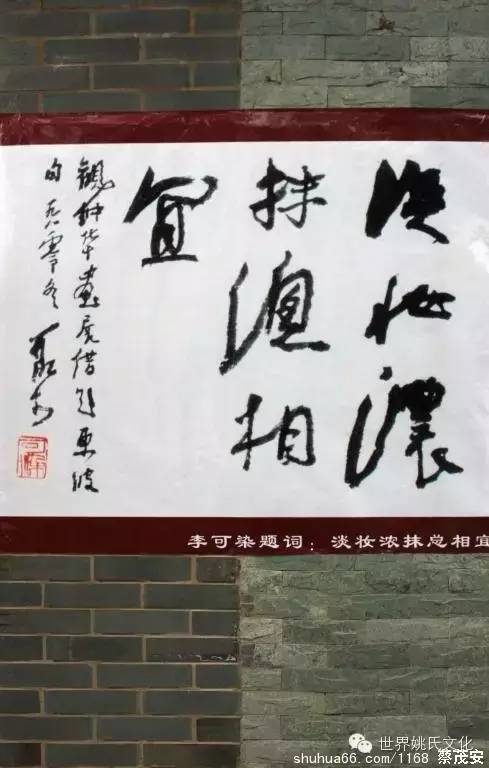 淡妝濃
抹總相
宜
觀鍾華畫展借題東坡
句 一九八零冬
可染
李可染题词：淡妆浓抹总相宜
世界姚氏文化
shuhua66.com/1168 蔡茂安